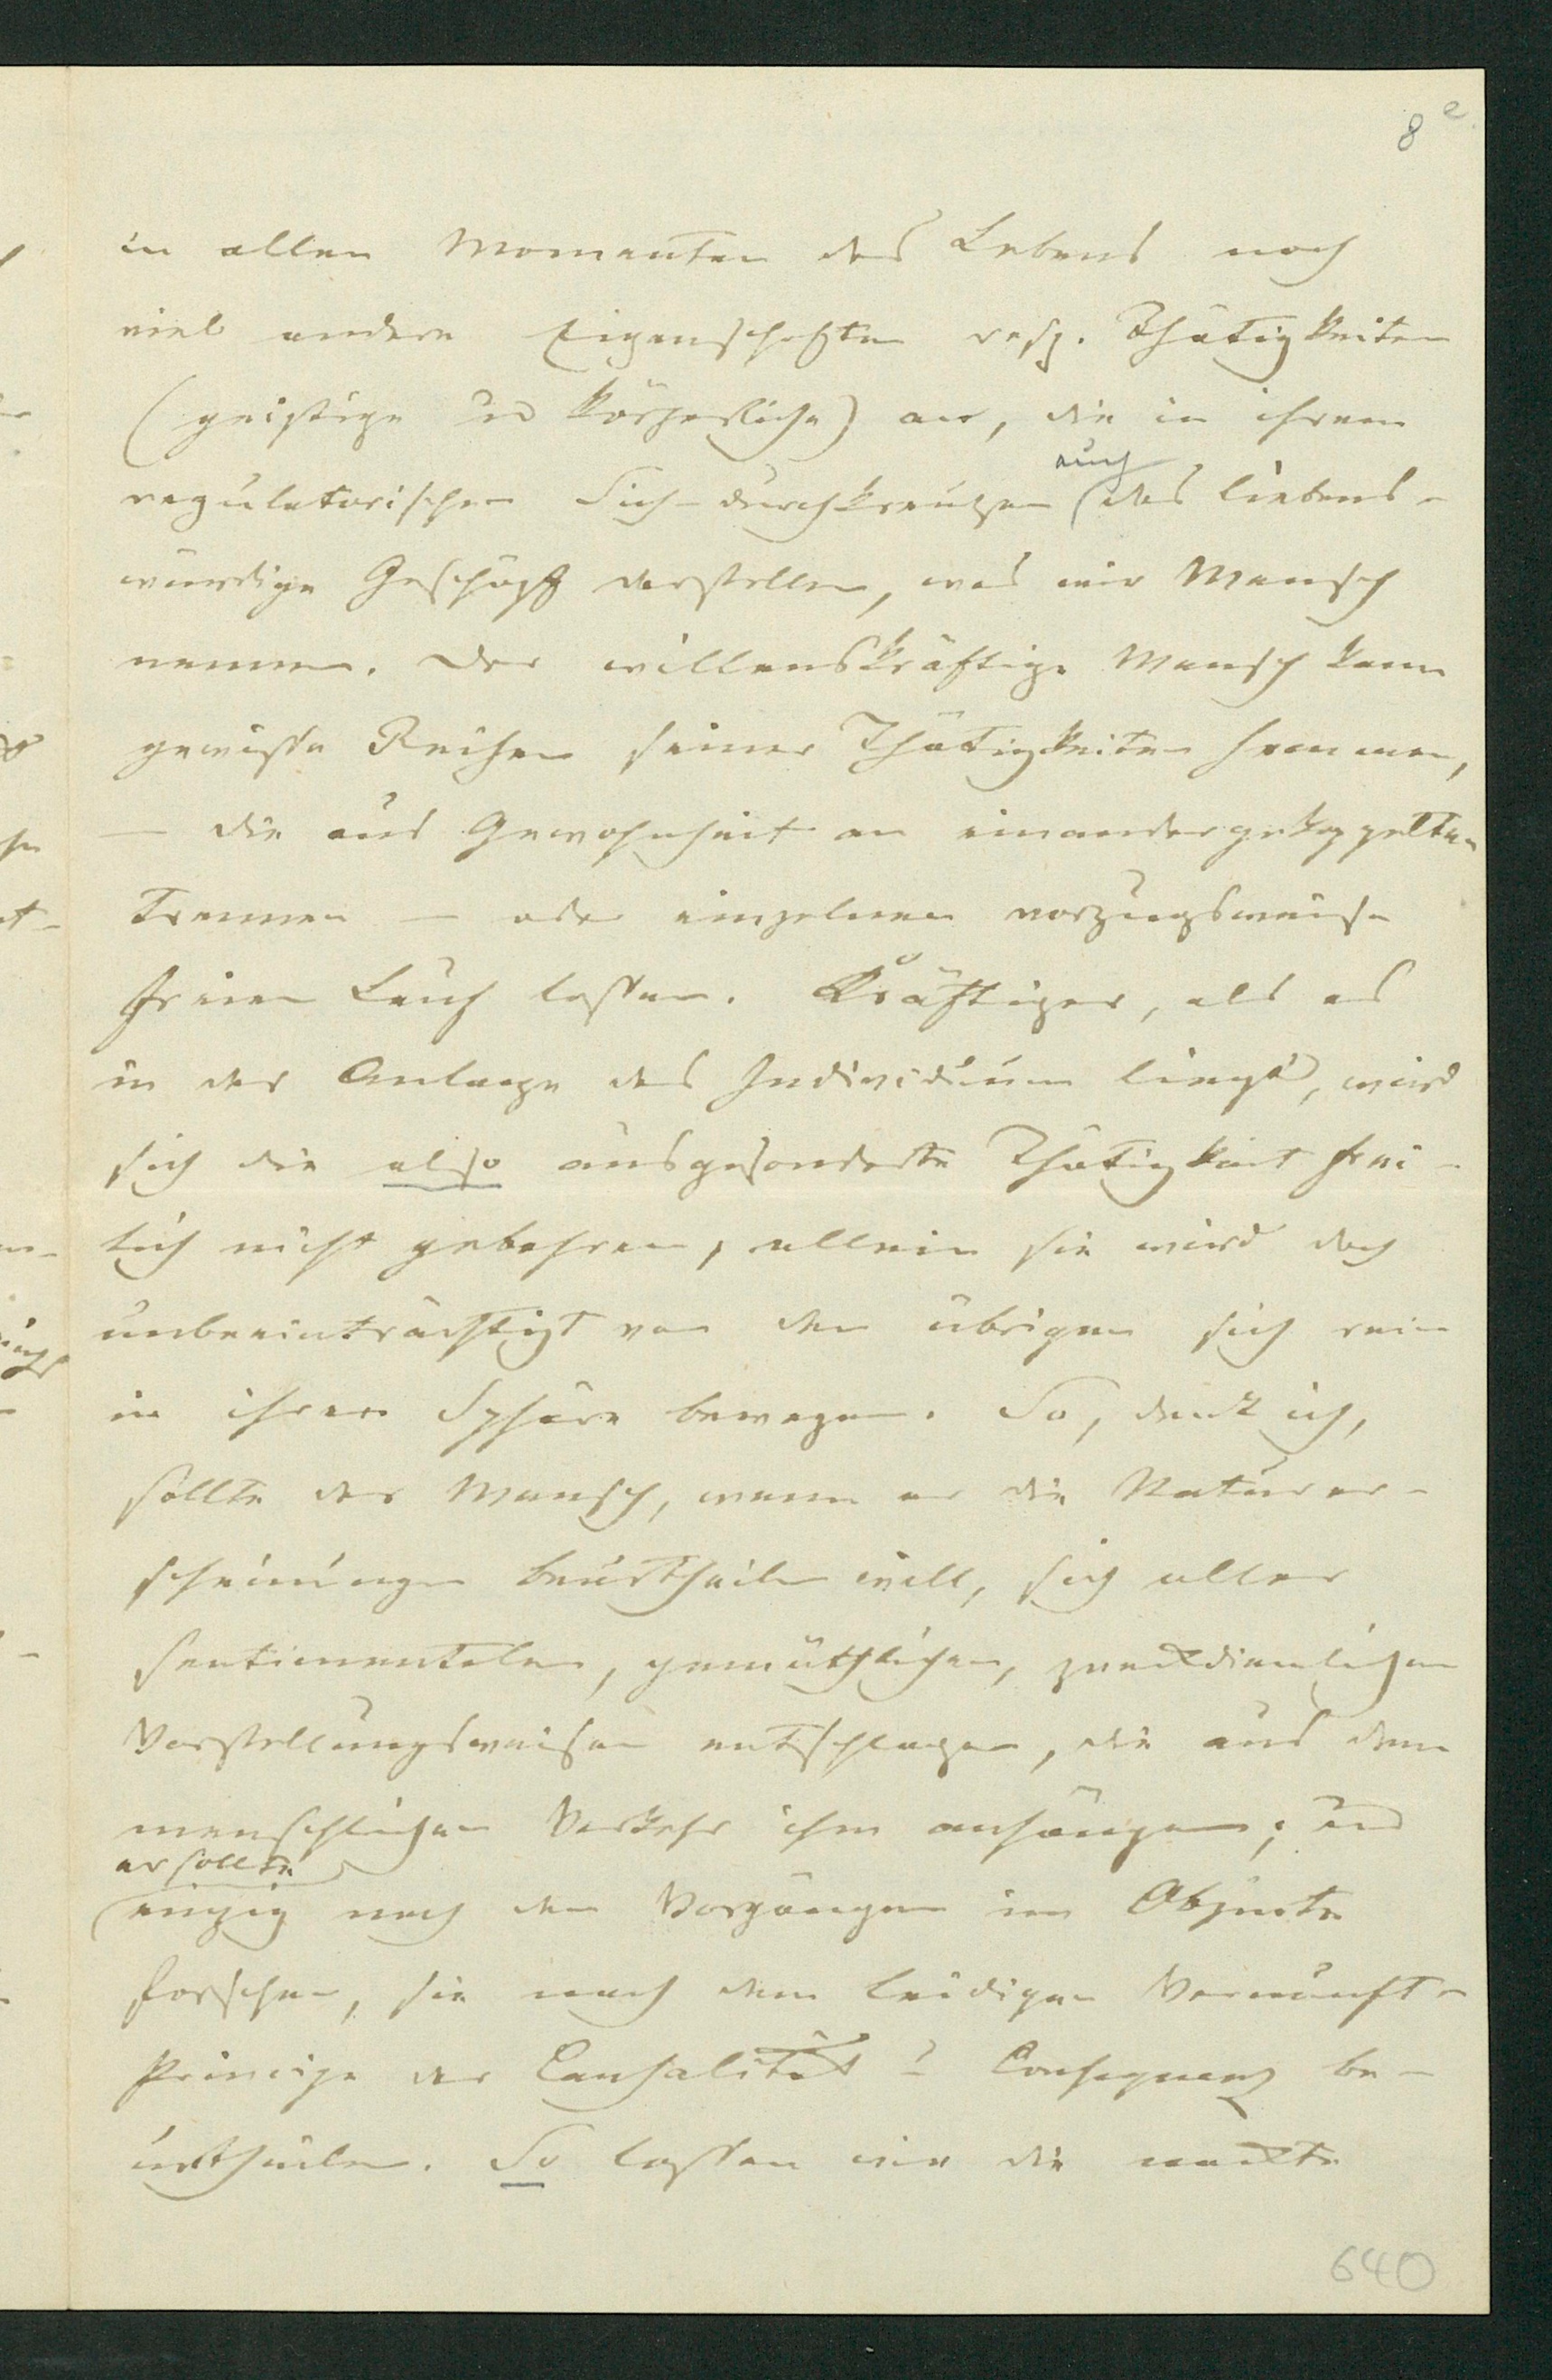 8 e
in allen Momenten des Lebens noch
viel andere Eigenschaften resp. Thätigkeiten
(geistige und körperliche) an, die in ihrem
auch
regulatorischen Sich-durchkreuzen das liebens-
würdige Geschöpf darstellen, was wir Mensch
nennen. Der willenskräftige Mensch kann
gewisse Reihen seiner Thätigkeiten hemmen,
— die aus Gewohnheit an einandergekoppelten
trennen — oder einzelnen vorzugsweise
freien Lauf lassen. Kräftiger, als es
in der Anlage des Individuum liegt, wird
sich die also ausgesonderte Thätigkeit frei-
lich nicht gebahren, allein sie wird doch
unbeeinträchtigt von den übrigen sich rein
in ihrer Sphäre bewegen. So, denk ich,
sollte der Mensch, wenn er die Naturer-
scheinungen beurtheilen will, sich aller
sentimentalen, gemüthlichen, zweckdienlichen
Vorstellungsweisen entschlagen, die aus dem
menschlichen Verkehr ihm anhängen; und
er sollte
einzig nach den Vorgängen im Objecte
forschen, sie nach dem leidigen Vernunft-
Principe der Causalität u Consequenz be-
urtheilen. So lassen wir die nackte
640